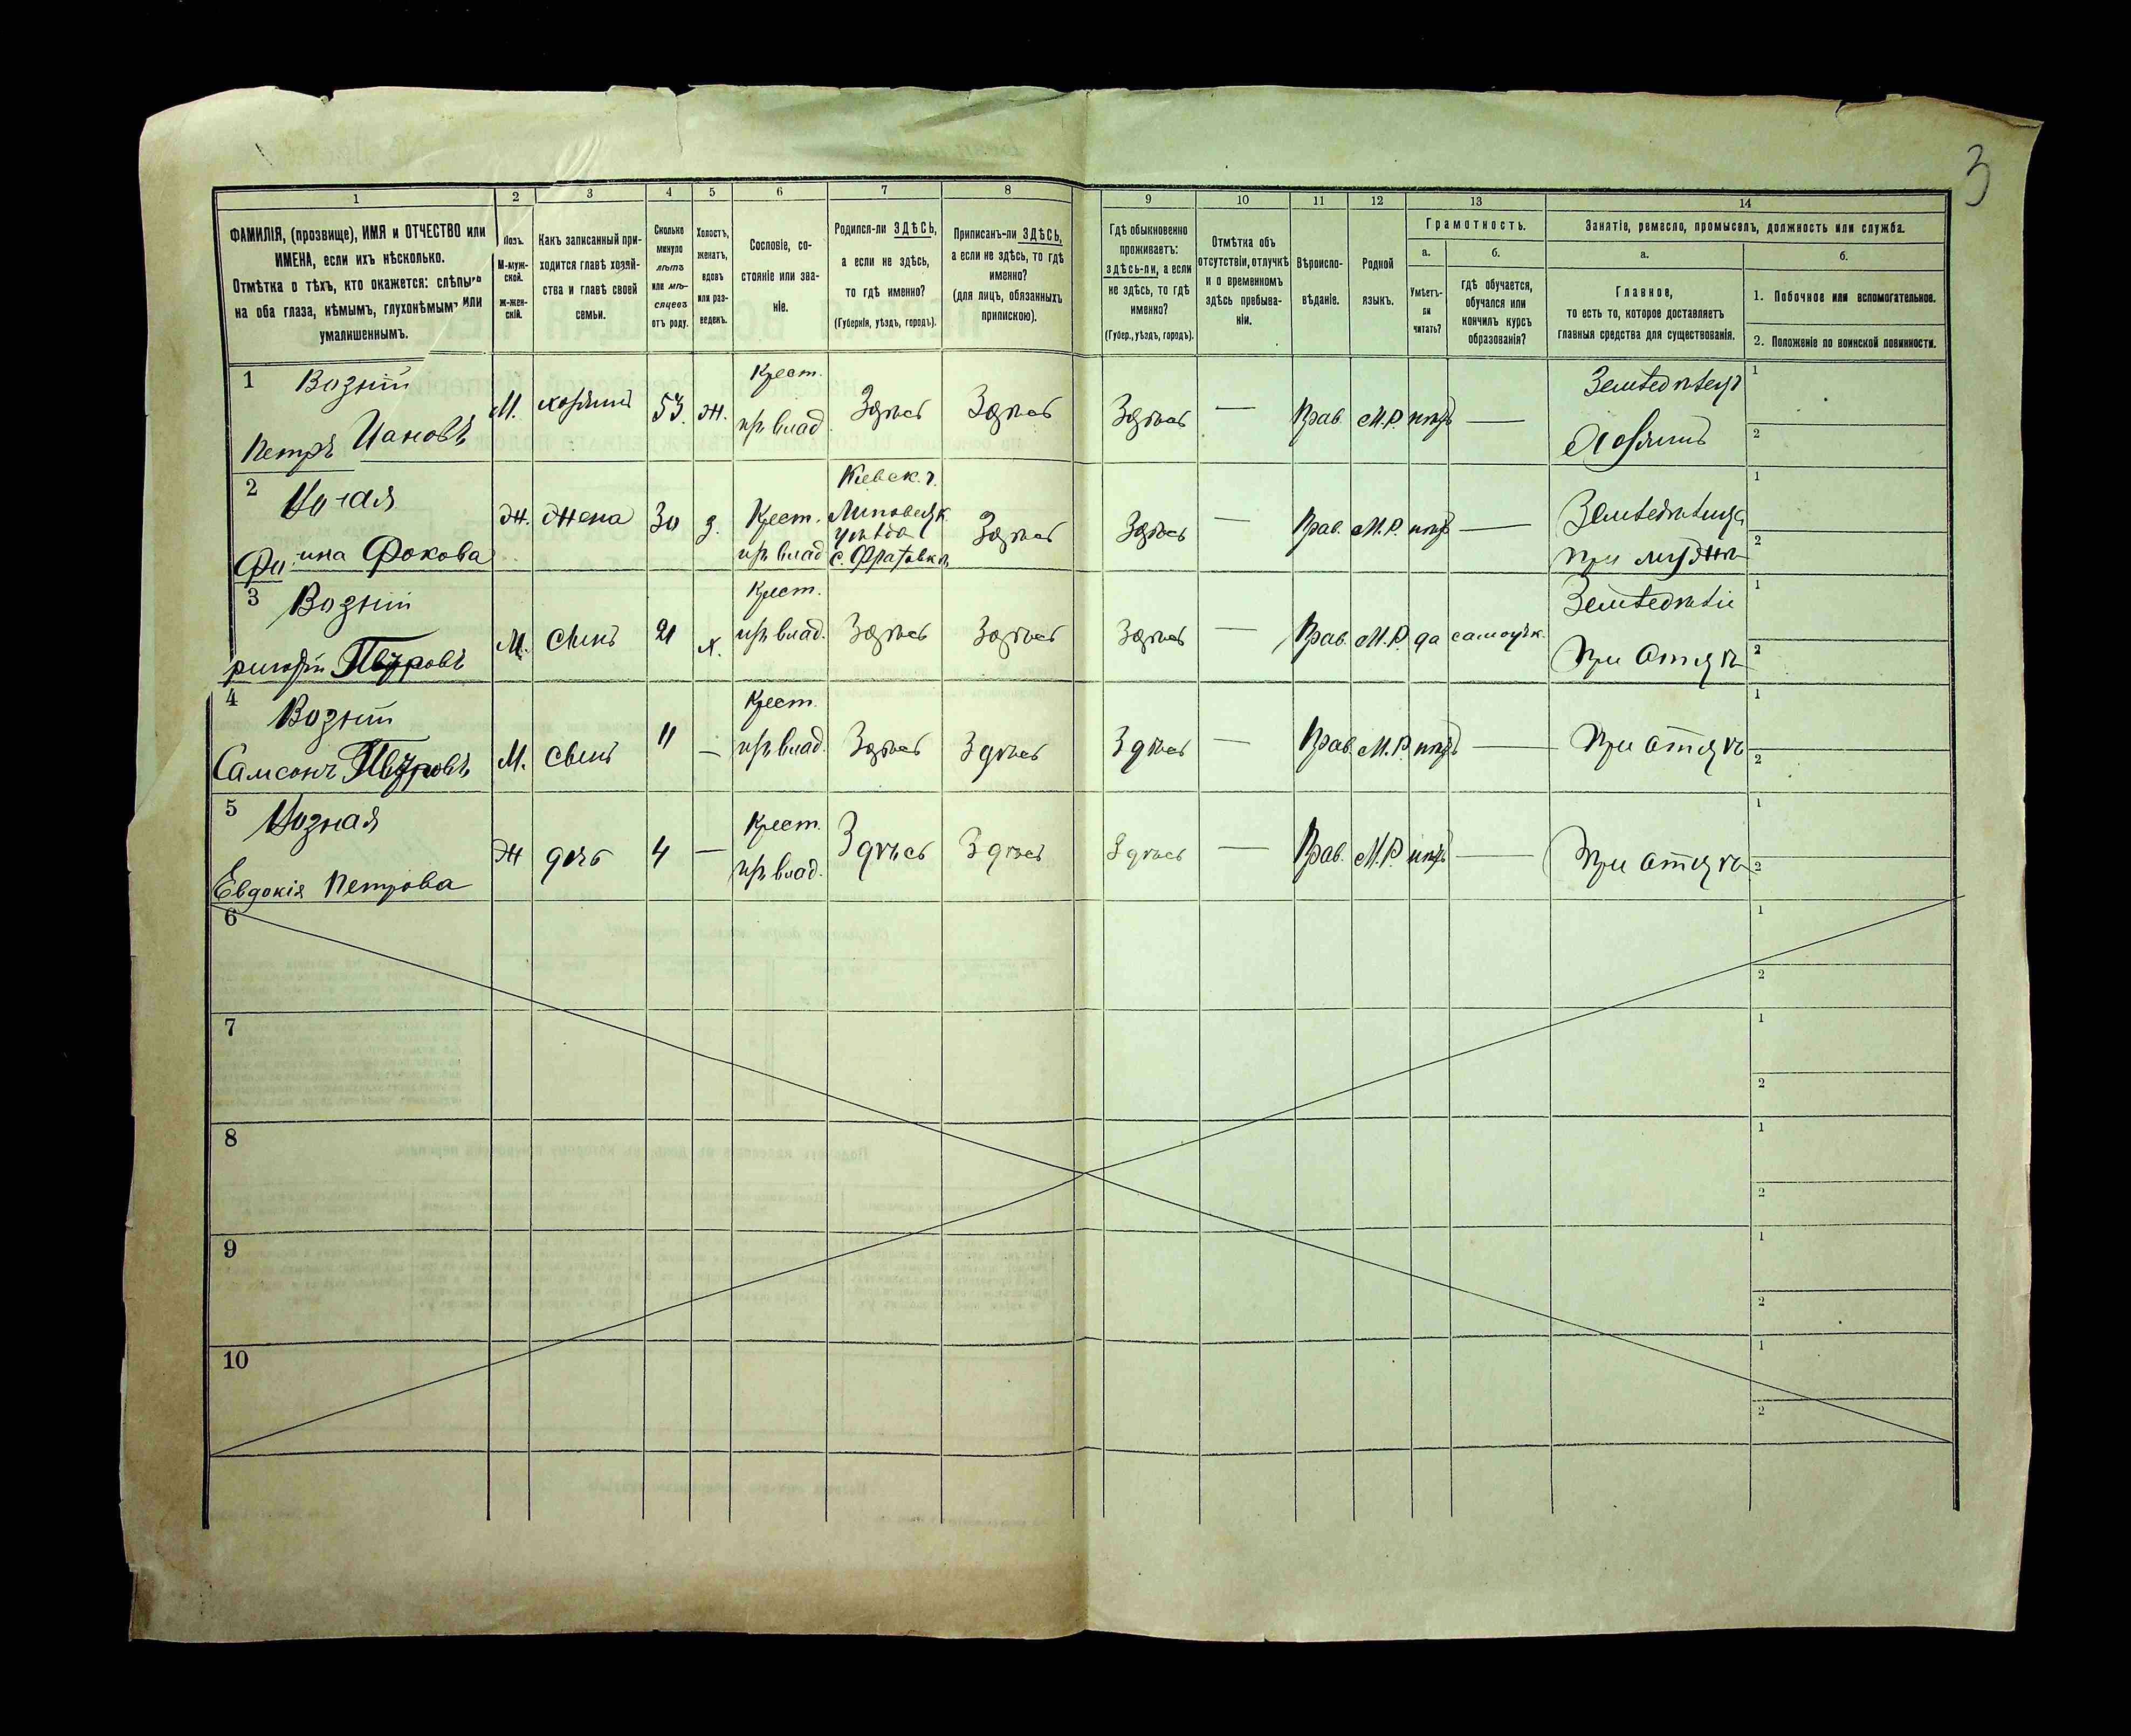 3
1 2 3 4 5 6 7 8 9 10 11 12 13 14
ФАМИЛІЯ, (прозвище), ИМЯ и ОТЧЕСТВО или
ИМЕНА, если ихъ нѣсколько.
Отмѣтка о тѣхъ, кто окажется: слѣпымъ
на оба глаза, нѣмымъ, глухонѣмымъ или
умалишеннымъ.
Полъ.
М-муж-
ской.
ж-жен-
скій.
Какъ записанный при-
ходится главѣ хозяй-
ства и главѣ своей
семьи.
Сколько
минуло
лѣтъ
или мѣ-
сяцевъ
отъ роду.
Холостъ,
женатъ,
вдовъ
или раз-
веденъ.
Сословіе, со-
стояніе или зва-
ніе.
Родился-ли ЗДѢСЬ,
а если не здѣсь,
то гдѣ именно?
(Губернія, уѣздъ, городъ).
Приписанъ-ли ЗДѢСЬ,
а если не здѣсь, то гдѣ
именно?
(для лицъ, обязанныхъ
припискою).
Гдѣ обыкновенно
проживаетъ:
здѣсь-ли, а если
не здѣсь, то гдѣ
именно?
(Губер., уѣздъ, городъ).
Отмѣтка объ
отсутствіи, отлучкѣ
и о временномъ
здѣсь пребыва-
ніи.
Вѣроиспо-
вѣданіе.
Родной
языкъ.
Грамотность.
а.
Умѣетъ-
ли
читать?
б.
гдѣ обучается,
обучался или
кончилъ курсъ
образованія?
Занятіе, ремесло, промыселъ, должность или служба.
а.
Главное,
то есть то, которое доставляетъ
главныя средства для существованія.
б.
1. Побочное или вспомогательное.
2. Положеніе по воинской повинности.
1 Возній Крест. Земледѣлецъ 1
Петръ Ивановъ М. хозяинъ 53 ж. кр. влад. Здѣсь Здѣсь Здѣсь — Прав. М.Р. нѣтъ — Хозяинъ 2
2 Кіевск. г. 1
Крест. Липовецк. Земледѣлица
Фокова Ж. Жена 30 з. кр. влад. уѣзда Здѣсь Здѣсь — Прав. М.Р. нѣтъ — при мужѣ 2
3 Возній Крест. Земледѣліе 1
Петровъ М. сынъ 21 х. кр. влад. Здѣсь Здѣсь Здѣсь — Прав. М.Р. да самоучк. При отцѣ 2
4 Возній Крест. 1
Самсонъ Петровъ М. сынъ 11 — кр. влад. Здѣсь Здѣсь Здѣсь — Прав. М.Р. нѣтъ — При отцѣ 2
5 Возная Крест. 1
Евдокія Петрова Ж дочь 4 — кр. влад. Здѣсь Здѣсь Здѣсь — Прав. М.Р. нѣтъ — При отцѣ 2
6 1
2
7 1
2
8 1
2
9 1
2
10 1
2